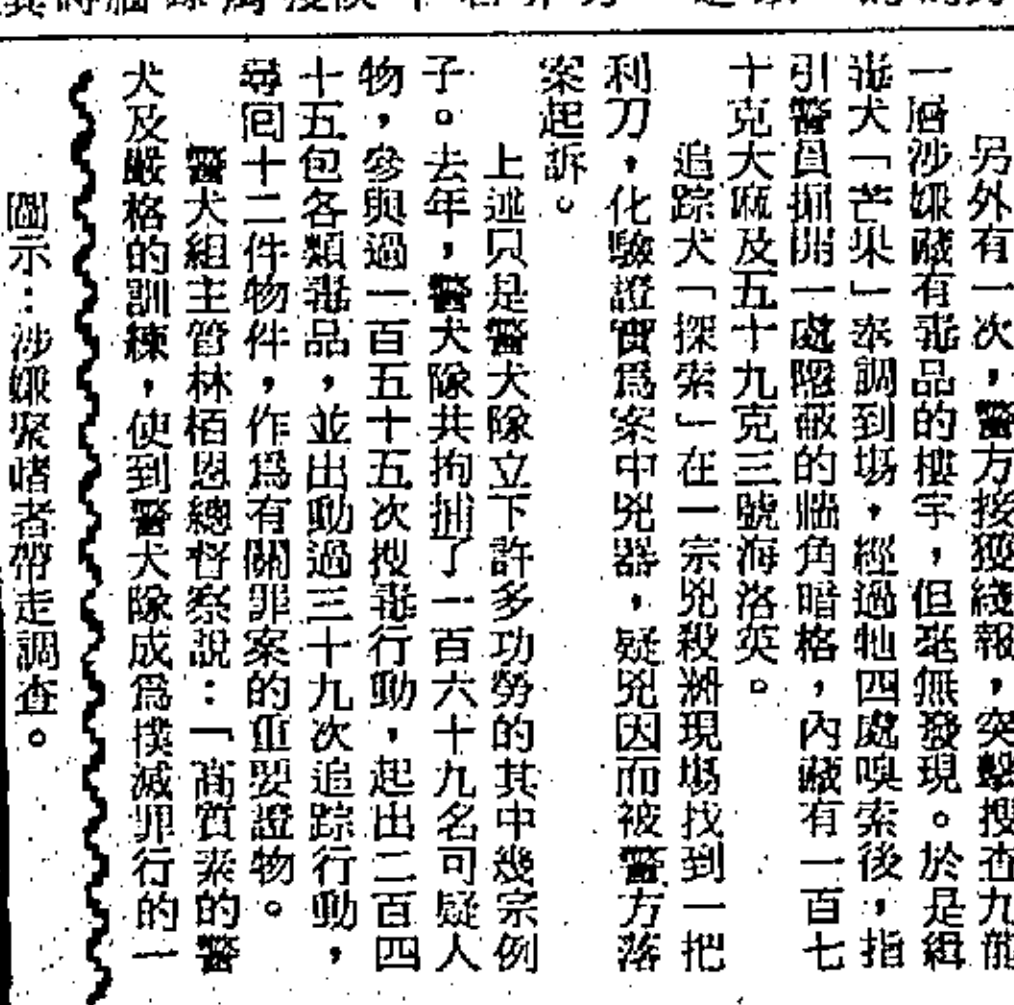 另外有一次，警方接獲綫報，突擊搜查九龍
一層涉嫌藏有毒品的樓宇，但毫無發現。於是緝
毒犬「芒果」奉調到場，經過牠四處嗅索後，指
引警員掘開一處隱蔽的牆角暗格，內藏有一百七
十克大麻及五十九克三號海洛英。
追踪犬「探索」在一宗兇殺案現場找到一把
利刀，化驗證實爲案中兇器，疑兇因而被警方落
案起訴。
上述只是警犬隊立下許多功勞的其中幾宗例
子。去年，警犬隊共拘捕了一百六十九名可疑人
物，參與過一百五十五次搜毒行動，起出二百四
十五包各類毒品，並出動過三十九次追踪行動，
尋回十二件物件，作爲有關罪案的重要證物。
警犬組主管林栢恩總督察說：「高質素的警
犬及嚴格的訓練，使到警犬隊成爲撲滅罪行的一
圖示：涉嫌聚賭者帶走調查。